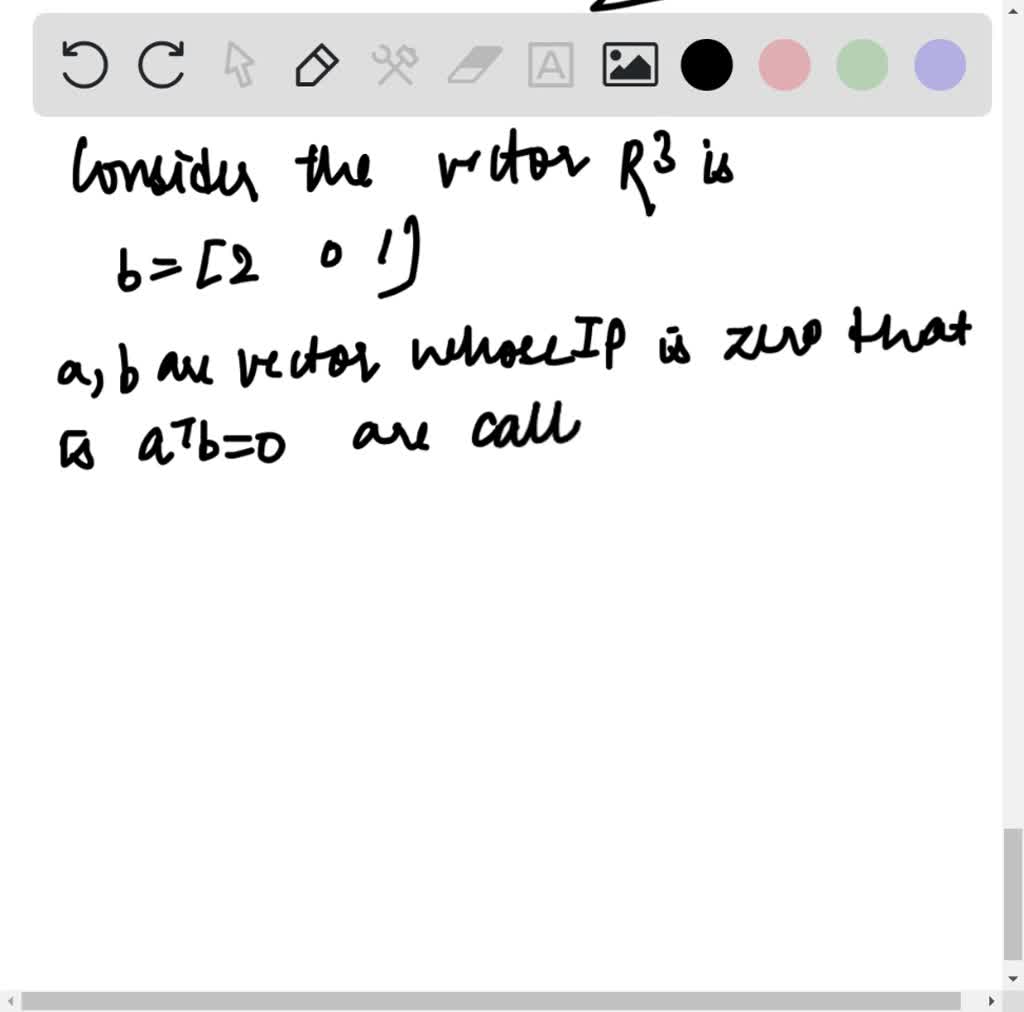 Consider the vector R³ is
b=[2 0 1]
a, b are vector whose IP is zero that
is aᵀb=0 are call